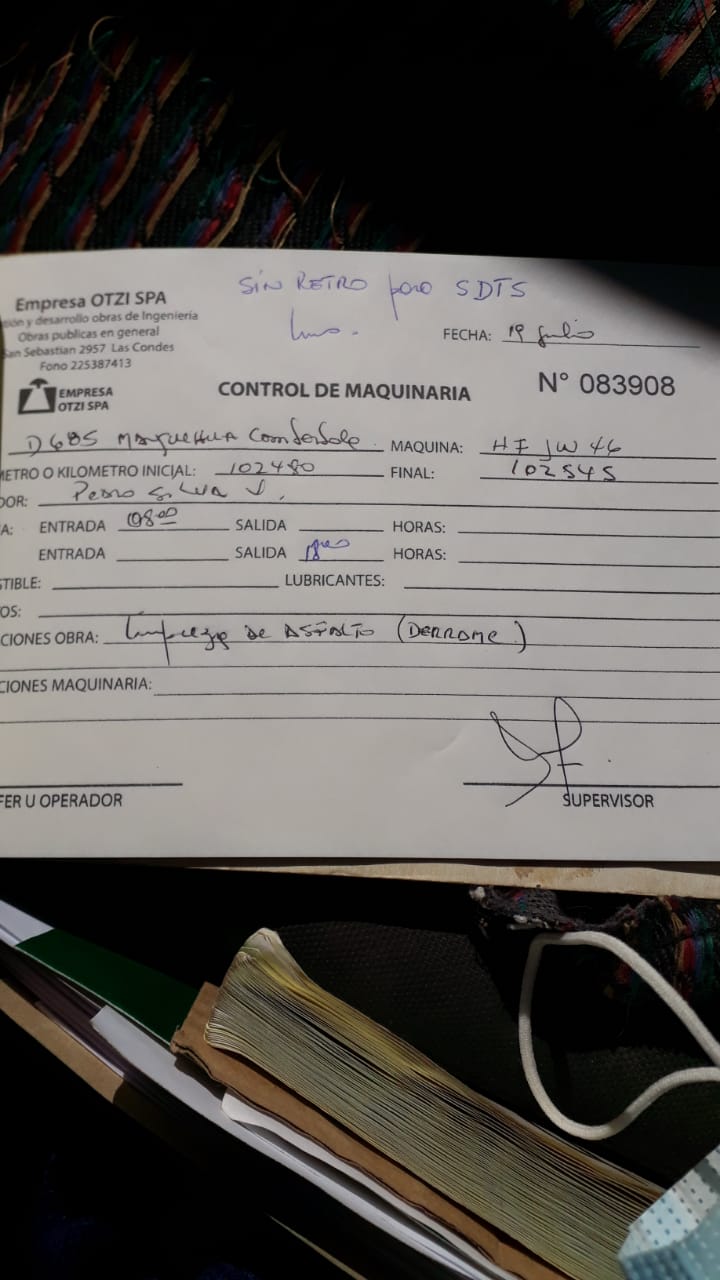 SIN RETRO para SDTS
Empresa OTZI SPA
sión y desarrollo obras de Ingeniería
Obras publicas en general
San Sebastian 2957 Las Condes
Fono 225387413
FECHA: 19 Julio
EMPRESA
OTZI SPA
CONTROL DE MAQUINARIA
N° 083908
D685 MAQUEHUA MAQUINA: HF JW 46
METRO O KILOMETRO INICIAL: 102480 FINAL: 102545
DOR: Pedro Silva V.
A: ENTRADA 08:00 SALIDA HORAS:
ENTRADA SALIDA 18 HORAS:
STIBLE: LUBRICANTES:
OS:
CIONES OBRA: Limpieza de ASFALTO (DERRAME)
CIONES MAQUINARIA:
FER U OPERADOR SUPERVISOR